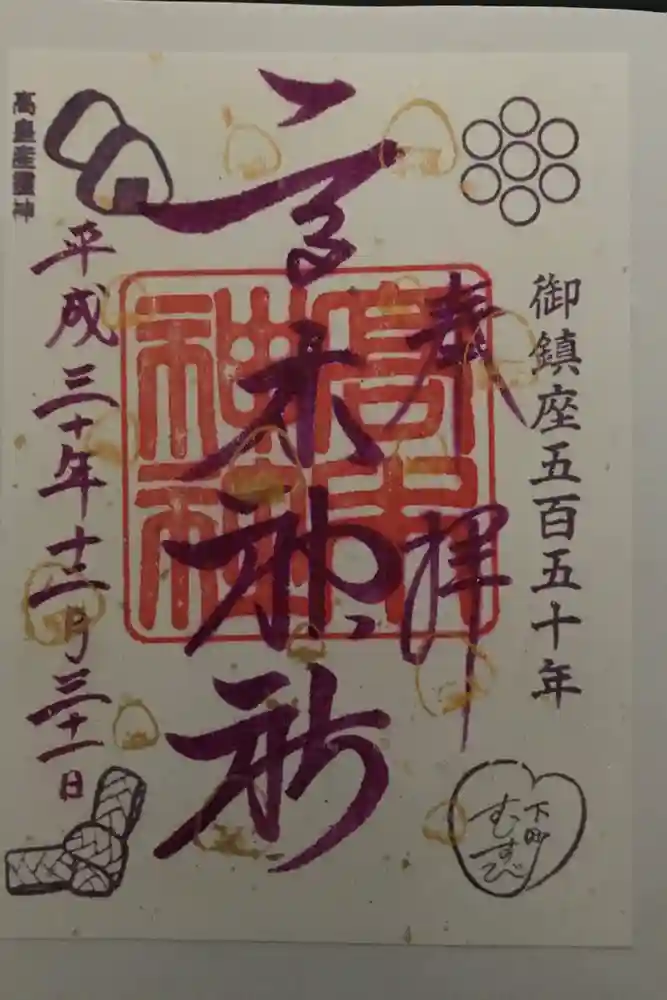 御鎮座五百五十年
奉拝
高木神社
高木神社
平成三十年十二月三十一日
高皇産靈神
下町
むすび